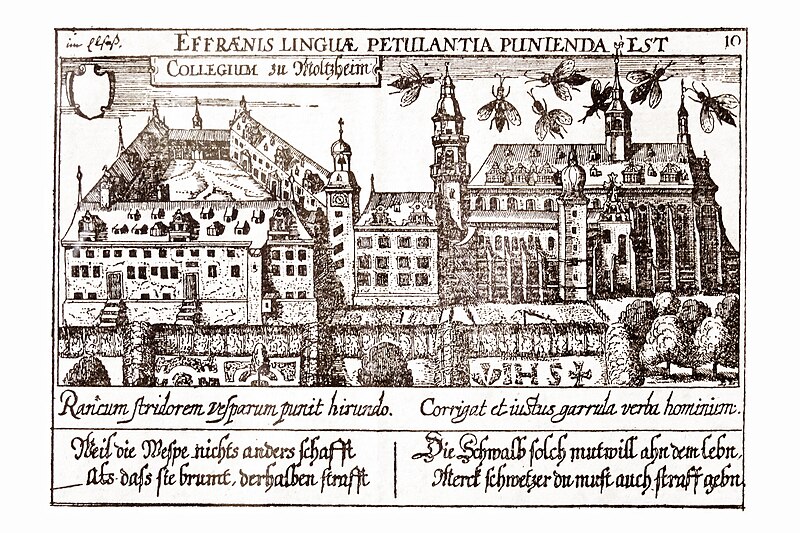 im Elsaß.
EFFRÆNIS LINGUÆ PETULANTIA PUNIENDA EST
10
COLLEGIUM zu Moltzheim
IHS
Rancum stridorem vesparum punit hirundo.
Corrigat et iustus garrula verba hominum.
Weil die Wespe nichts anders schafft
Als dass sie brumt, derhalben strafft
Die Schwalb solch mutwill ahn dem lebn,
Merck schwetzer du must auch straff gebn.